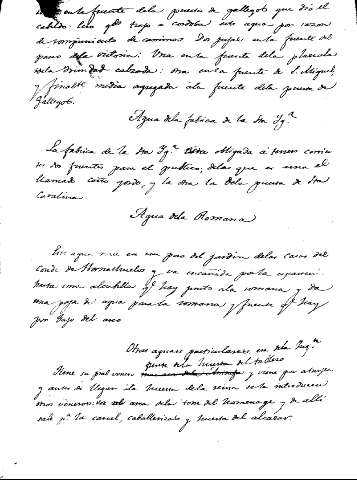 en la fuente dela puerta de gallegos que dio el
cabildo los q.e trajo a cordoba esta agua por razon
de rompimiento de caminos Dos pajas en la fuente del
paseo dela victoria: Una en la fuente dela plazuela
dela trinidad calzada: una en la fuente de S. Miguel,
y finalte media agregada ála fuente dela puerta de
Gallegos.
Agua dela fabrica de la Sta Yg.a
La fabrica de la Sta Yg.a tiene obligada á tener corrien
tes dos fuentes para el publico, delas que es una el
llamado caño gordo, y la otra la dela puerta de Sta
Catalina
Agua dela Romana
Este agua nace en un paso del jardin delas casas del
Conde de Hornachuelos y va encañada por la
hasta una alcubilla q.e hay junto ála romana y da
una paja de agua para la romana y fuente q.e hay
por bajo del arco
Otras aguas particulares en dela Ygª
frente dela huerta del tablero
Tiene su pral venero y viene por atarjea
y antes de llegar ála huerta dela reina se le introducen
otros veneros: va al arca dela torre del homenage y de alli
sale p.a la carcel, caballerizas y huerta del alcazar.